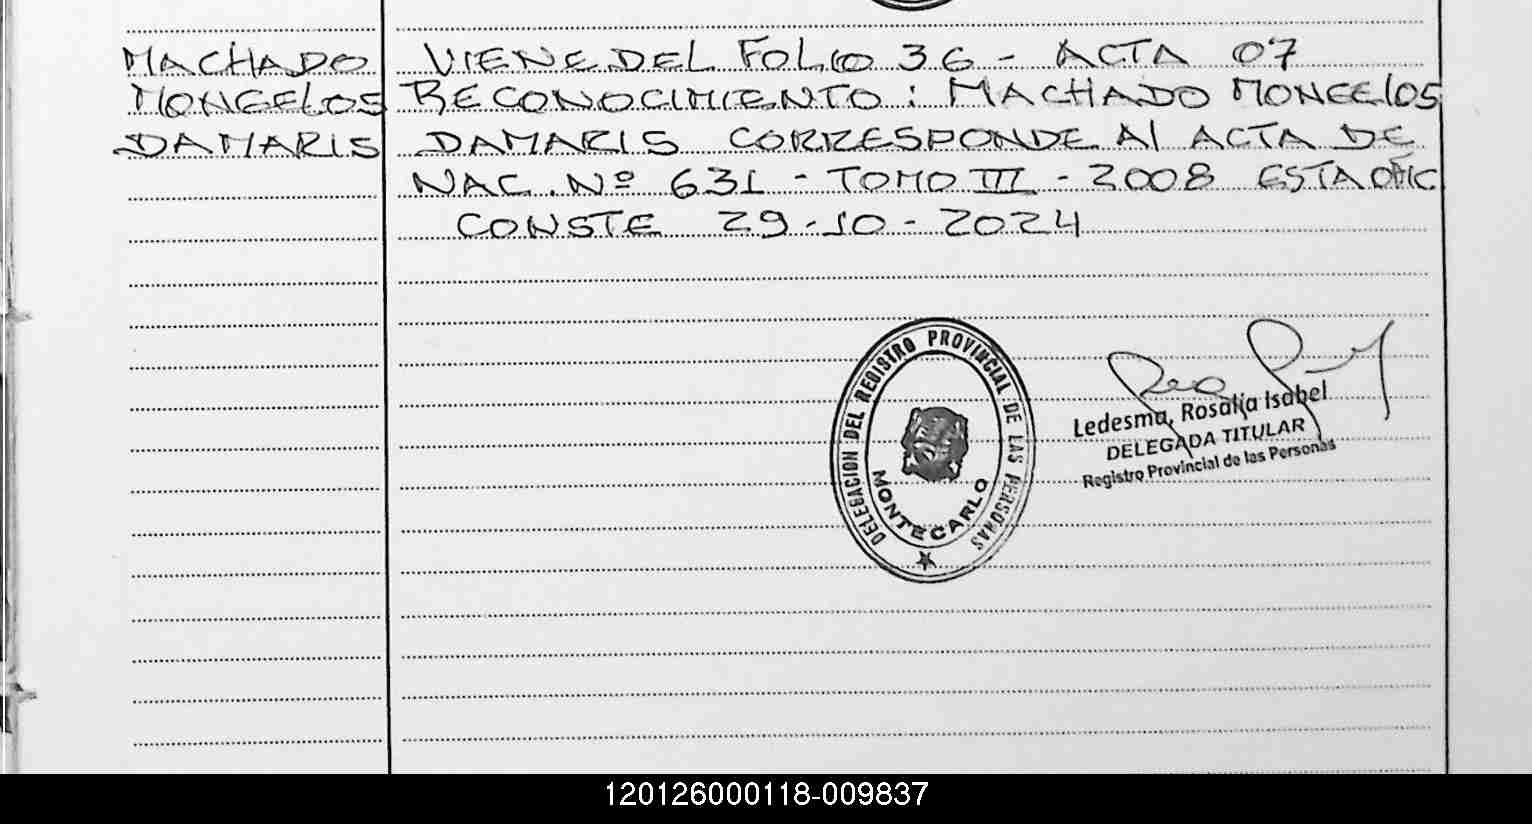 MACHADO VIENE DEL FOLIO 36 - ACTA 07
MONGELOS RECONOCIMIENTO: MACHADO MONGELOS
DAMARIS DAMARIS CORRESPONDE Al ACTA DE
NAC. Nº 631 - TOMO III - 2008 ESTA OFIC
CONSTE 29-10-2024
DELEGACION DEL REGISTRO PROVINCIAL DE LAS PERSONAS
MONTECARLO
Ledesma, Rosalía Isabel
DELEGADA TITULAR
Registro Provincial de las Personas
120126000118-009837